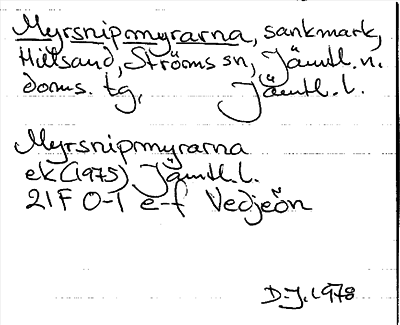 Myrsnipmyrarna, sankmark,
Hillsand, Ströms sn, Jämtl. n.
doms. tg, Jämtl. l.
Myrsnipmyrarna
ek (1975) Jämtl. l.
21F 0-1 e-f Vedjeön
D-J. 1978